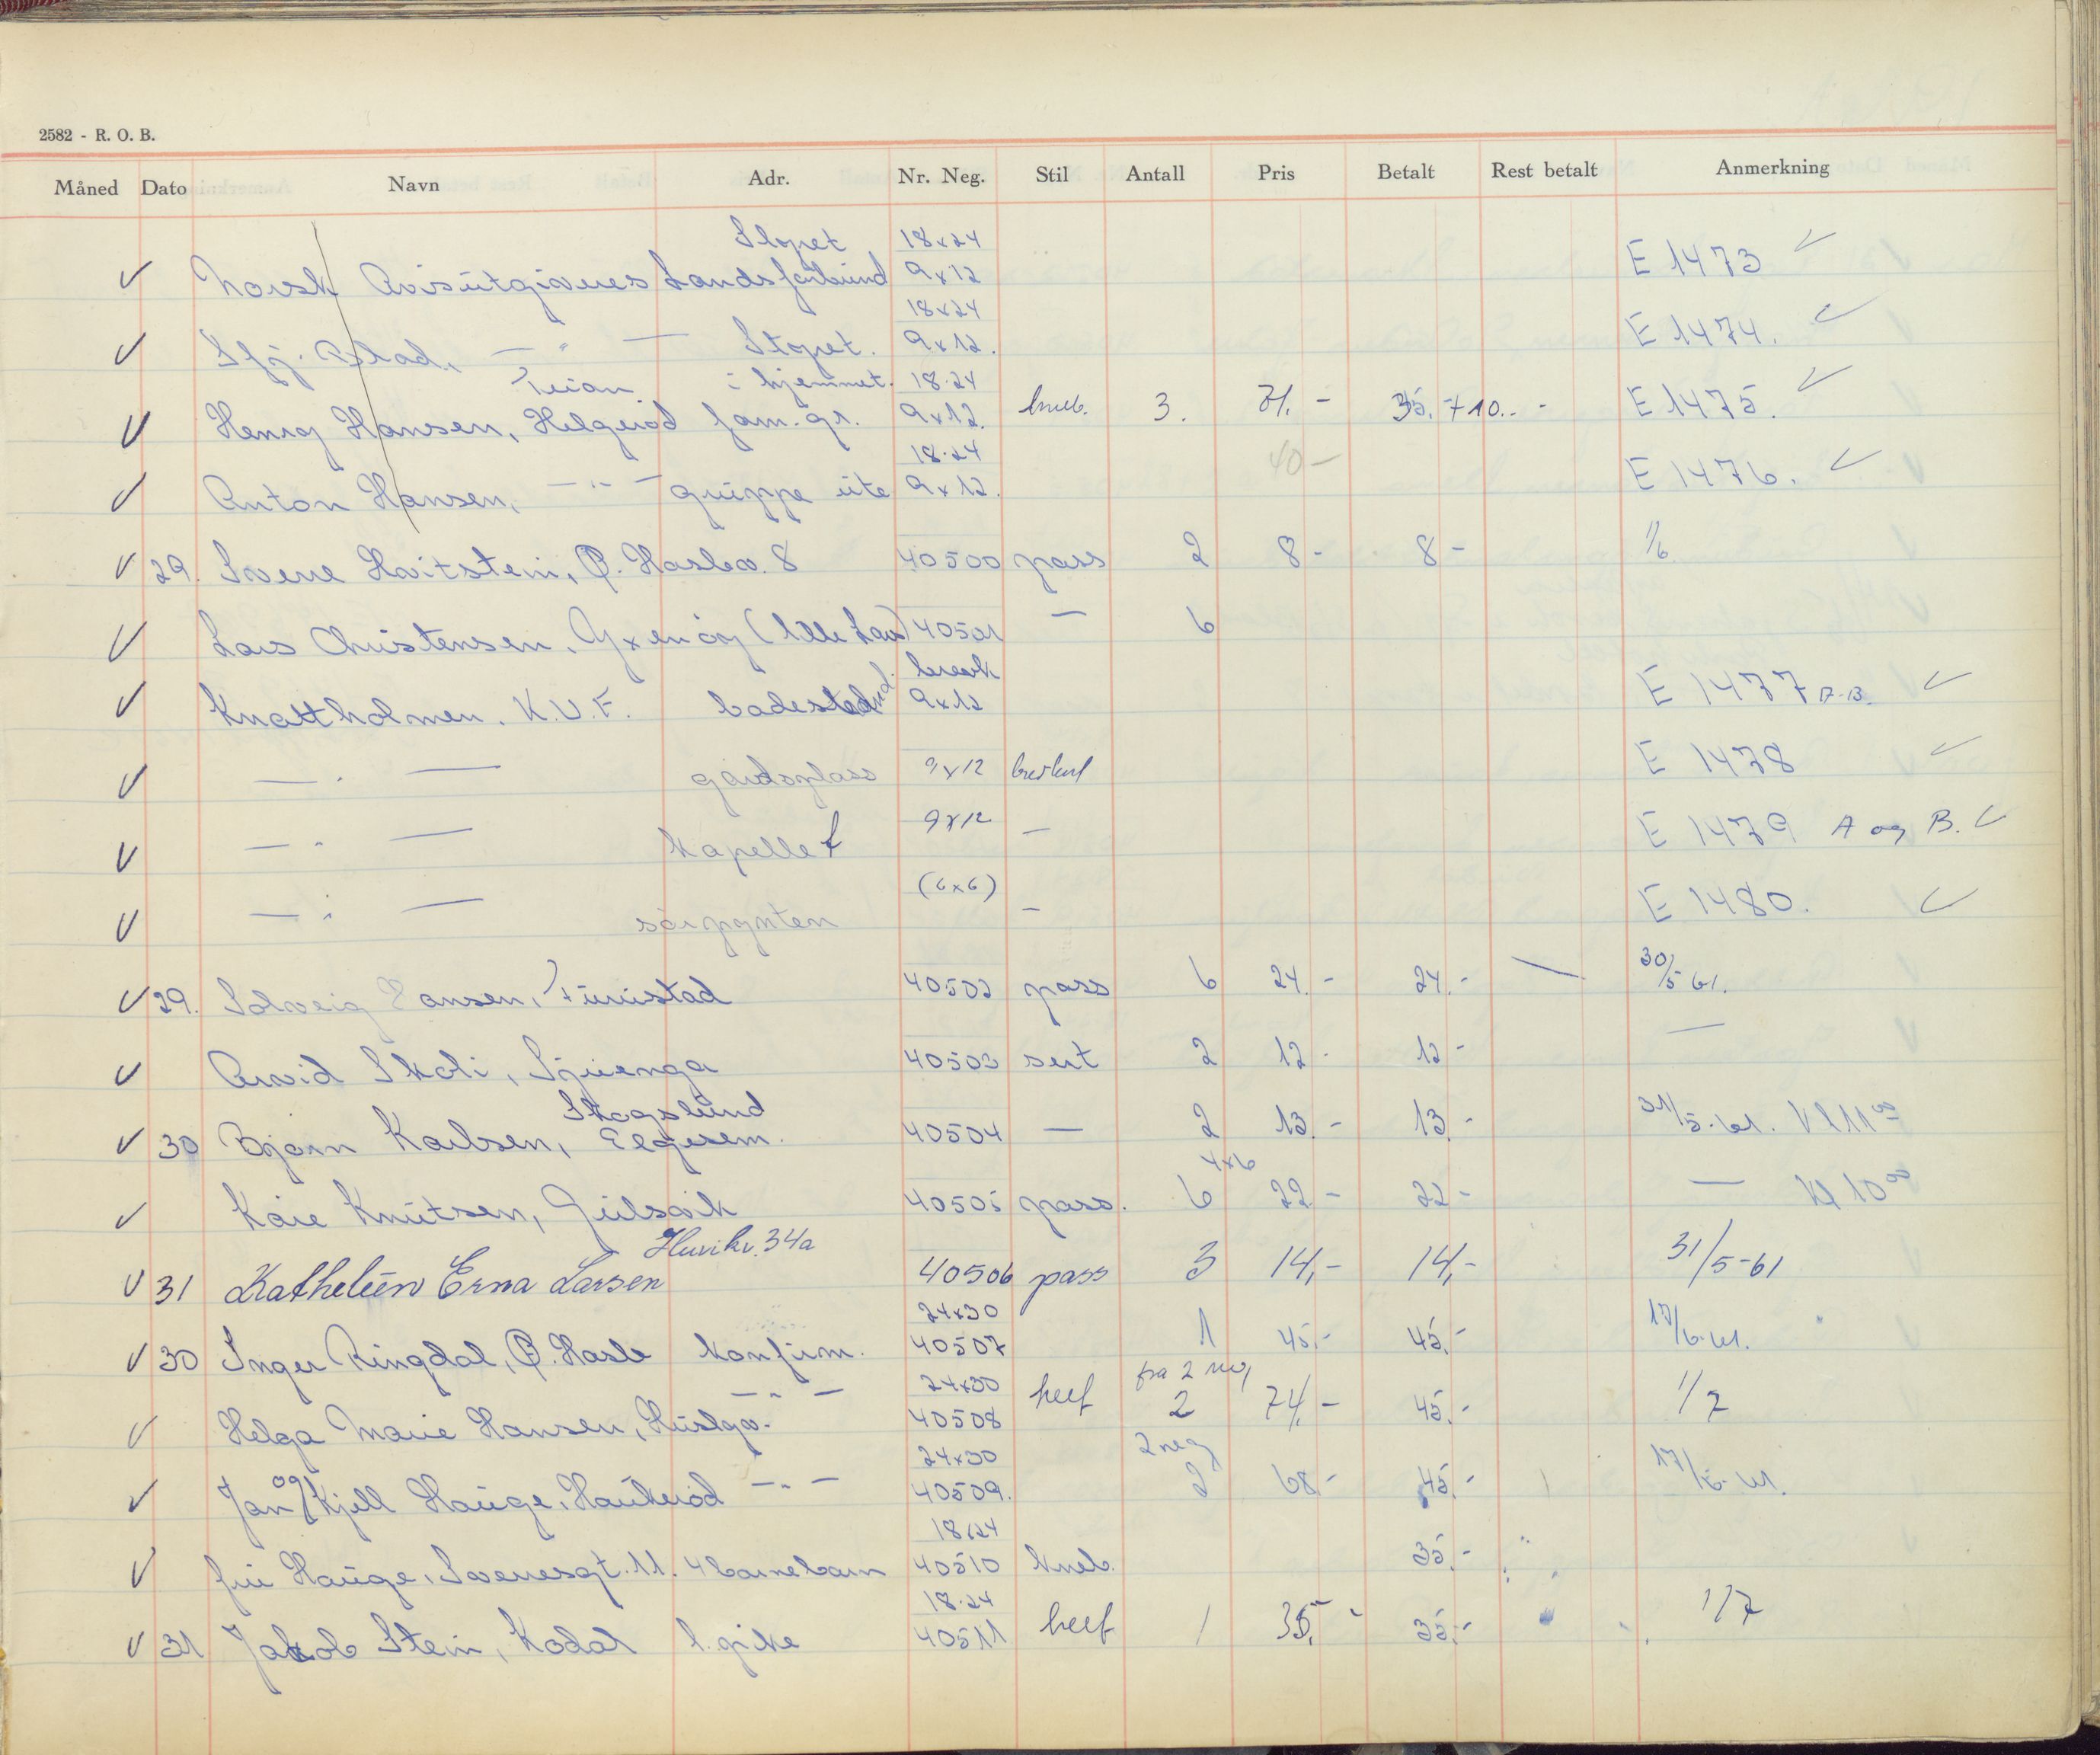 2582 - R. O. B.
Måned Dato Navn Adr. Nr. Neg. Stil Antall Pris Betalt Rest betalt Anmerkning
Slopet 18x24
Norsk Avisutgiveres Landsforbund 9x12 E 1473 ✓
18x24
Sfj. Blad. — " — Slopet. 9x12. E 1474. ✓
i hjemmet. 18.24
Henry Hansen, Helgerød fam. gr. 9x12. 3. 71.- 35.+10.- E 1475. ✓
18.24
Anton Hansen, — " — gruppe ute 9x12. 40- E 1476. ✓
29. Svene Hvitstein, Ø. Haslev. 8 40500 pass 2 8- 8- 1/6
Lars Christensen, (lille Lars) 40501 — 6
Knattholmen. K.U.F. badestrand. 9x12 E 1477 A-B. ✓
— " — gårdsplass 9x12 E 1478 ✓
— " — kapellet 9x12 — E 1479 A og B. ✓
— " — sørpynten (6x6) — E 1480. ✓
29. Solveig Hansen, Furustad 40502 pass 6 24.- 24.- — 30/5 61.
Arvid Skoli, Sjuenga 40503 sert 2 12- 12- —
Skogslund
30 Bjørn Karlsen, Elgesem. 40504 — 2 13.- 13.- 31/5.61. Kl 11 00
4x6
Kåre Knutsen, Gulsvik 40505 pass. 6 22- 22- — Kl 10 00
34a
31 Kathelèen Erna Larsen 40506 pass 3 14,- 14,- 31/5-61
24x30
30 Inger Ringdal, Ø. Hasle konfirm. 40507 1 45.- 45.- 17/6.61.
— " — 24x30 fra 2 neg
Helga Marie Hansen, 40508 heef 2 74.- 45.- 1/7
24x30 2 neg
Jan og Kjell Hauge, Haukerød — " — 40509. 2 68- 45.- 17/6.61.
18x24
fru Hauge, Sverresgt. 11. 4 barnebarn 40510 kneb. 35.-
18.24
31 Jakob Stein, Kodal 40511 heef 1 35.- 35.- 1/7